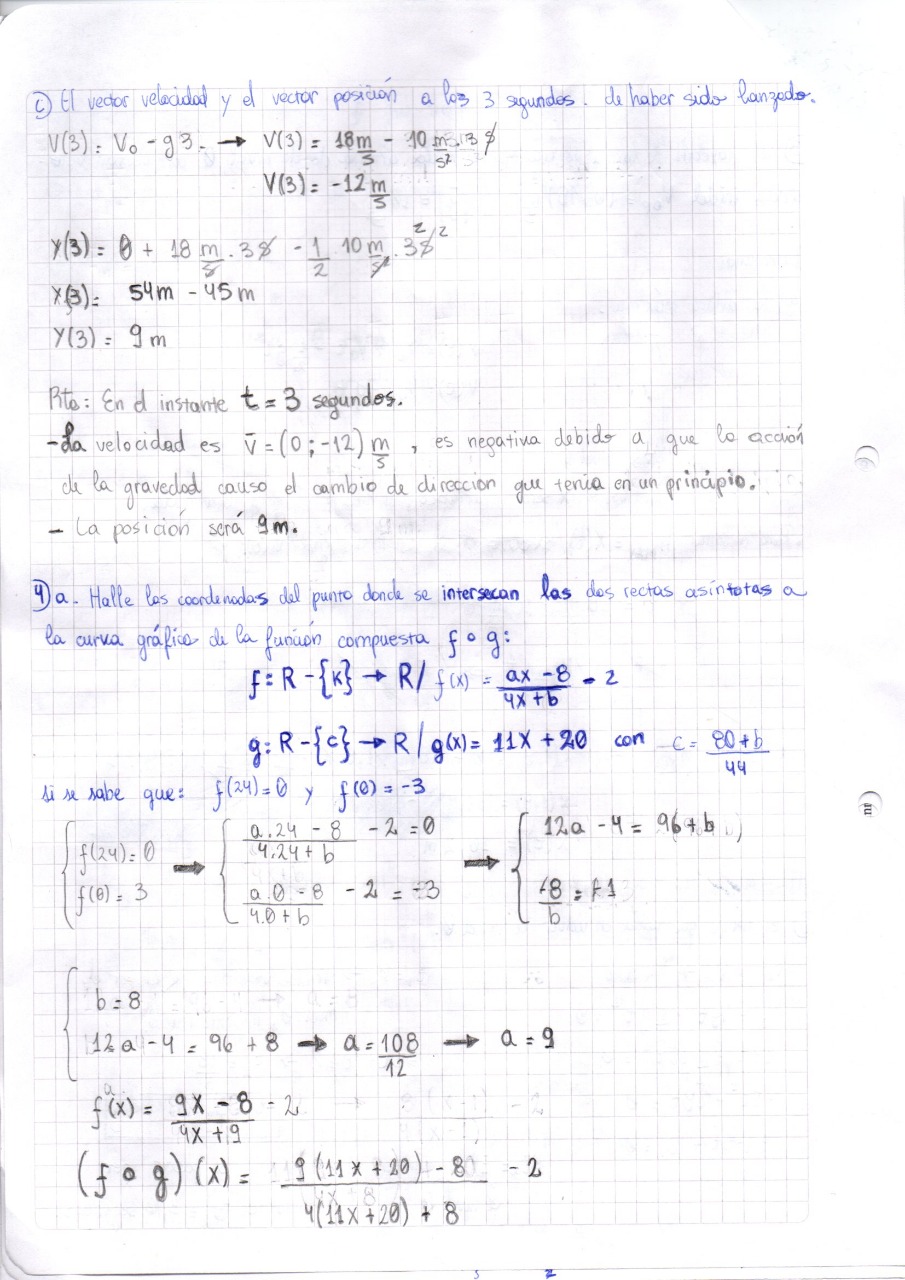 c) El vector velocidad y el vector posición a los 3 segundos. de haber sido lanzado.
V(3) = V₀ - g3. → V(3) = 18 m/s - 10 m/s² . 3 s
V(3) = -12 m/s
Y(3) = 0 + 18 m/s . 3s - 1/2 10 m/s² . 3² s²
Y(3) = 54m - 45m
Y(3) = 9m
Rta: En el instante t = 3 segundos.
- La velocidad es v̄ = (0 ; -12) m/s , es negativa debido a que la acción
de la gravedad causo el cambio de direccion que tenia en un principio.
- La posición será 9m.
4) a. Halle las coordenadas del punto donde se intersecan las dos rectas asíntotas a
la curva gráfica de la función compuesta f o g:
f: R - {k} → R / f(x) = (ax - 8)/(4x + b) - 2
g: R - {c} → R / g(x) = 11x + 20 con c = (80 + b)/44
si se sabe que: f(24) = 0 y f(0) = -3
{ f(24) = 0 → { (a.24 - 8)/(4.24 + b) - 2 = 0 → { 12a - 4 = 96 + b
f(0) = 3 (a.0 - 8)/(4.0 + b) - 2 = -3 -8/b = -1
{ b = 8
12a - 4 = 96 + 8 → a = 108/12 → a = 9
f(x) = (9x - 8)/(4x + 9) - 2
(f o g)(x) = (9(11x + 20) - 8)/(4(11x + 20) + 8) - 2